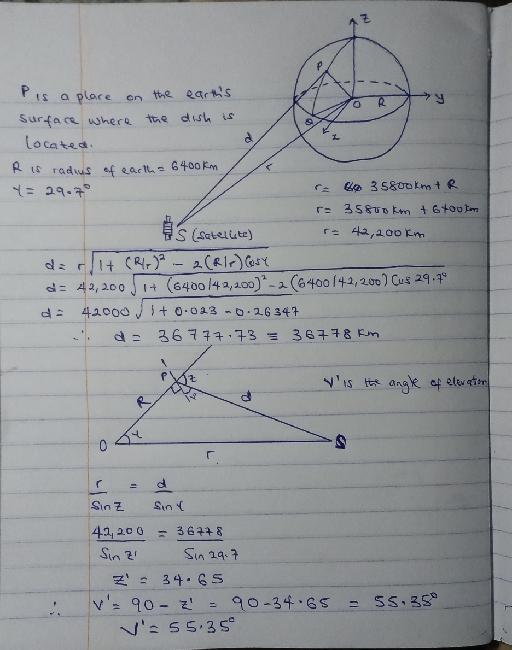 Z
P
O
R
y
Q
x
d
r
S (Satellite)
P is a place on the earth's
surface where the dish is
located.
R is radius of earth = 6400km
γ = 29.7°
r = 35800km + R
r = 35800km + 6400km
r = 42,200km
d = r√1 + (R/r)² - 2(R/r) Cosγ
d = 42,200 √1 + (6400/42,200)² - 2(6400/42,200) Cos 29.7°
d = 42000 √1 + 0.023 - 0.26347
∴ d = 36777.73 ≡ 36778 km
P
Z
V'
V' is the angle of elevation
R
d
O
γ
r
S
r = d
Sin Z Sin γ
42,200 = 36778
Sin Z' Sin 29.7
Z' = 34.65
∴ V' = 90 - Z' = 90 - 34.65 = 55.35°
V' = 55.35°